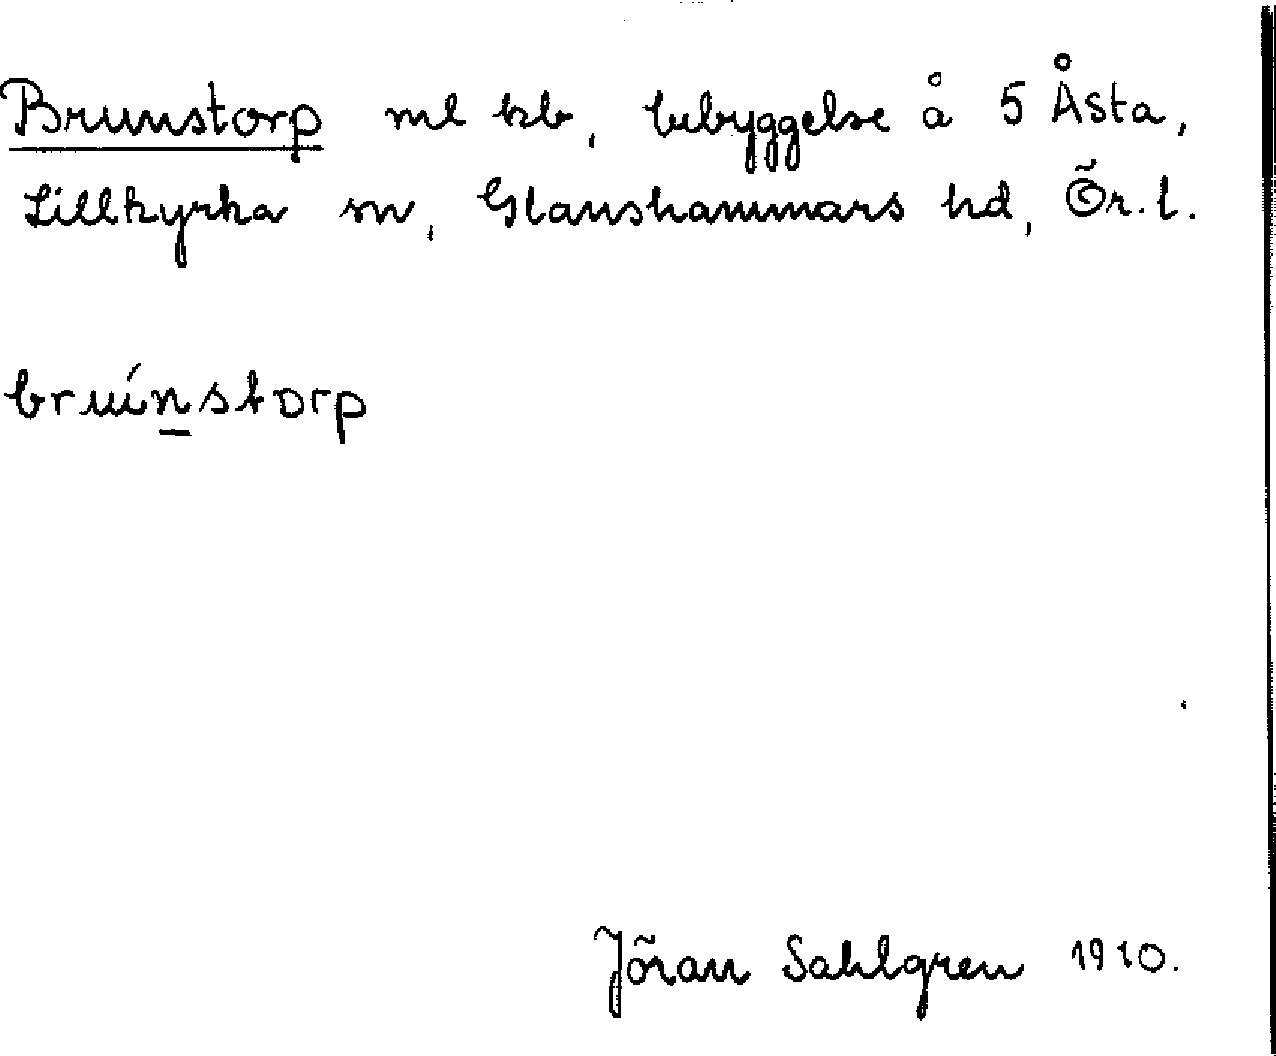 Brunstorp ml kb, bebyggelse å 5 Åsta,
Lillkyrka sn, Glanshammars hd, Ör. l.
bruúnstorp
Jöran Sahlgren 1910.